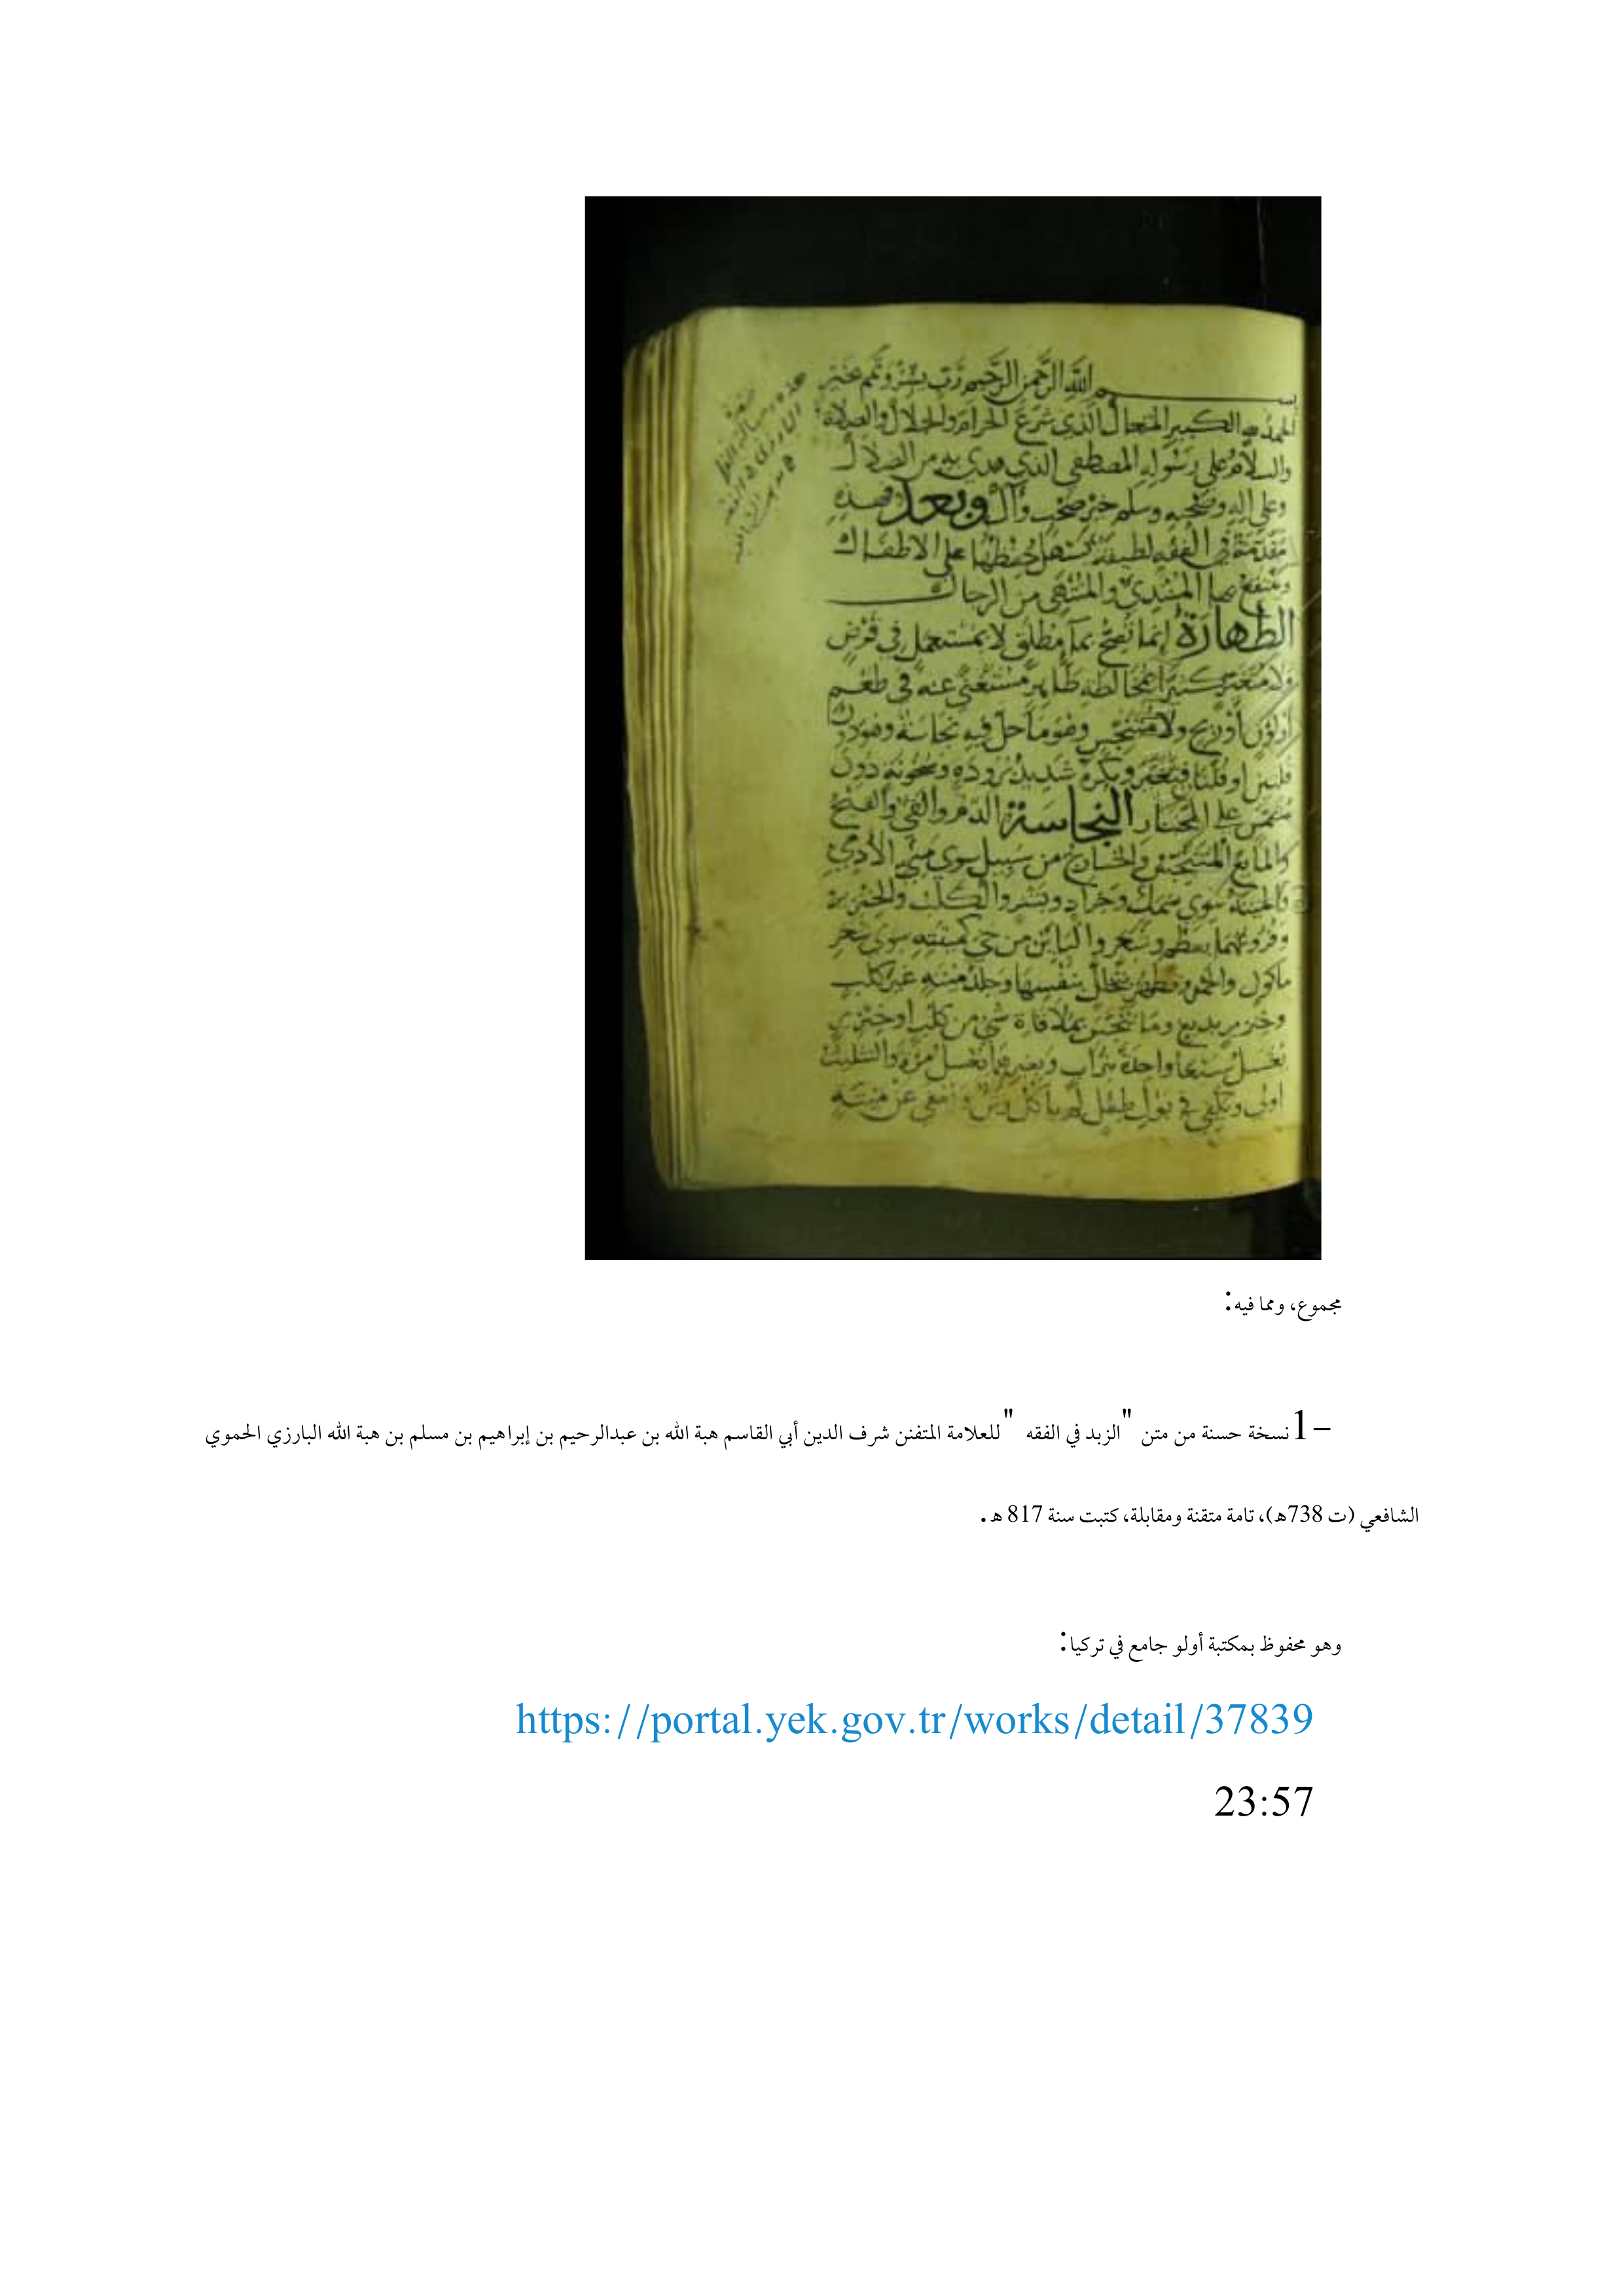 بسم الله الرحمن الرحيم رب يسر وتمم بخير
الحمد لله الكبير المتعال الذي شرع الحرام والحلال والصلاة
والسلام على رسوله المصطفى الذي هدى به من الضلال
وعلى اله وصحبه وسلم خير صحب وآل وبعد فهذه
مقدمة في الفقه لطيفة يسهل حفظها على الاطفال
وينتفع بها المبتدئ والمنتهي من الرجال
الطهارة إنما تصح بماء مطلق لا بمستعمل في فرض
ولا متغير كثيرا بمخالطه طاهر مستغنى عنه في طعم
أو لون أو ريح ولا متنجس وهو ما حل فيه نجاسة وهو دون
قلتين او قلتان فتغير ويكره شديد بروده وسخونة دون
مشمس على المختار النجاسة الدم والقئ والقيح
والمائع المتنجس والخارج من سبيل سوى مني الآدمي
والميتة سوى سمك وجراد وبشر والكلب والخنزير
وفروعهما بعظم وشعر والبائن من حي كميتته سوى شعر
ماكول والخمر وتطهر بتخلل بنفسها وجلد ميته غير كلب
وخنزير بدبغ وما تنجس بملاقاة شئ من كلب او خنزير
يغسل سبعا واحدة بتراب وبغيرهما تغسل مرة والتثليث
اولى ويكفي في بول طفل لم ياكل رش عن ميتة
هذه رسالة
البارزي في الفقه
مجموع، ومما فيه:
1– نسخة حسنة من متن "الزبد في الفقه" للعلامة المتفنن شرف الدين أبي القاسم هبة الله بن عبدالرحيم بن إبراهيم بن مسلم بن هبة الله البارزي الحموي
الشافعي (ت 738هـ)، تامة متقنة ومقابلة، كتبت سنة 817 هـ.
وهو محفوظ بمكتبة أولو جامع في تركيا:
https://portal.yek.gov.tr/works/detail/37839
23:57